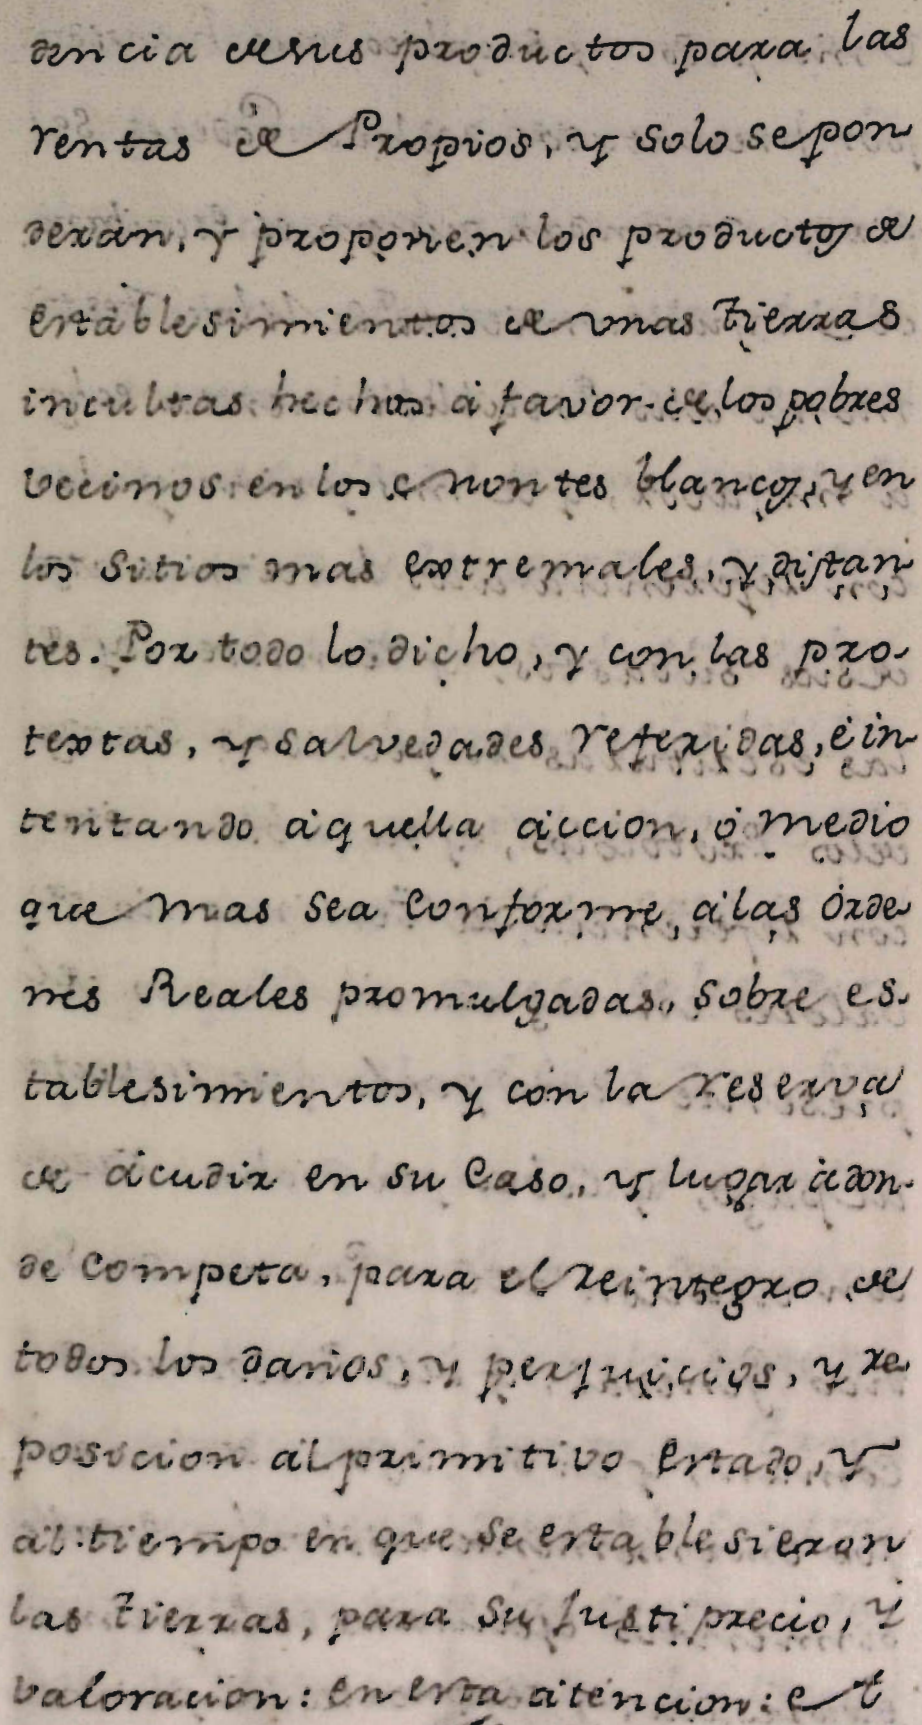 dencia de sus productos para las
rentas de Propios, y solo se pon
derán, y proponen los productos de
establesimientos de unas tierras
incultas hechos á favor de los pobres
vecinos en los Montes blancos, y en
los sitios mas extremales, y distan
tes. Por todo lo dicho, y con las pro-
textas, y salvedades referidas, é in-
tentando aquella accion, ó medio
que mas sea conforme, á las Orde
nes Reales promulgadas, sobre es-
tablesimientos, y con la reserva
de acudir en su Caso, y lugar á don-
de Competa, para el reintegro de
todos los daños, y perjuicios, y re
posicion al primitivo estado, y
al tiempo en que se establesieron
las tierras, para su Justi precio, y
valoracion: en esta atencion: et